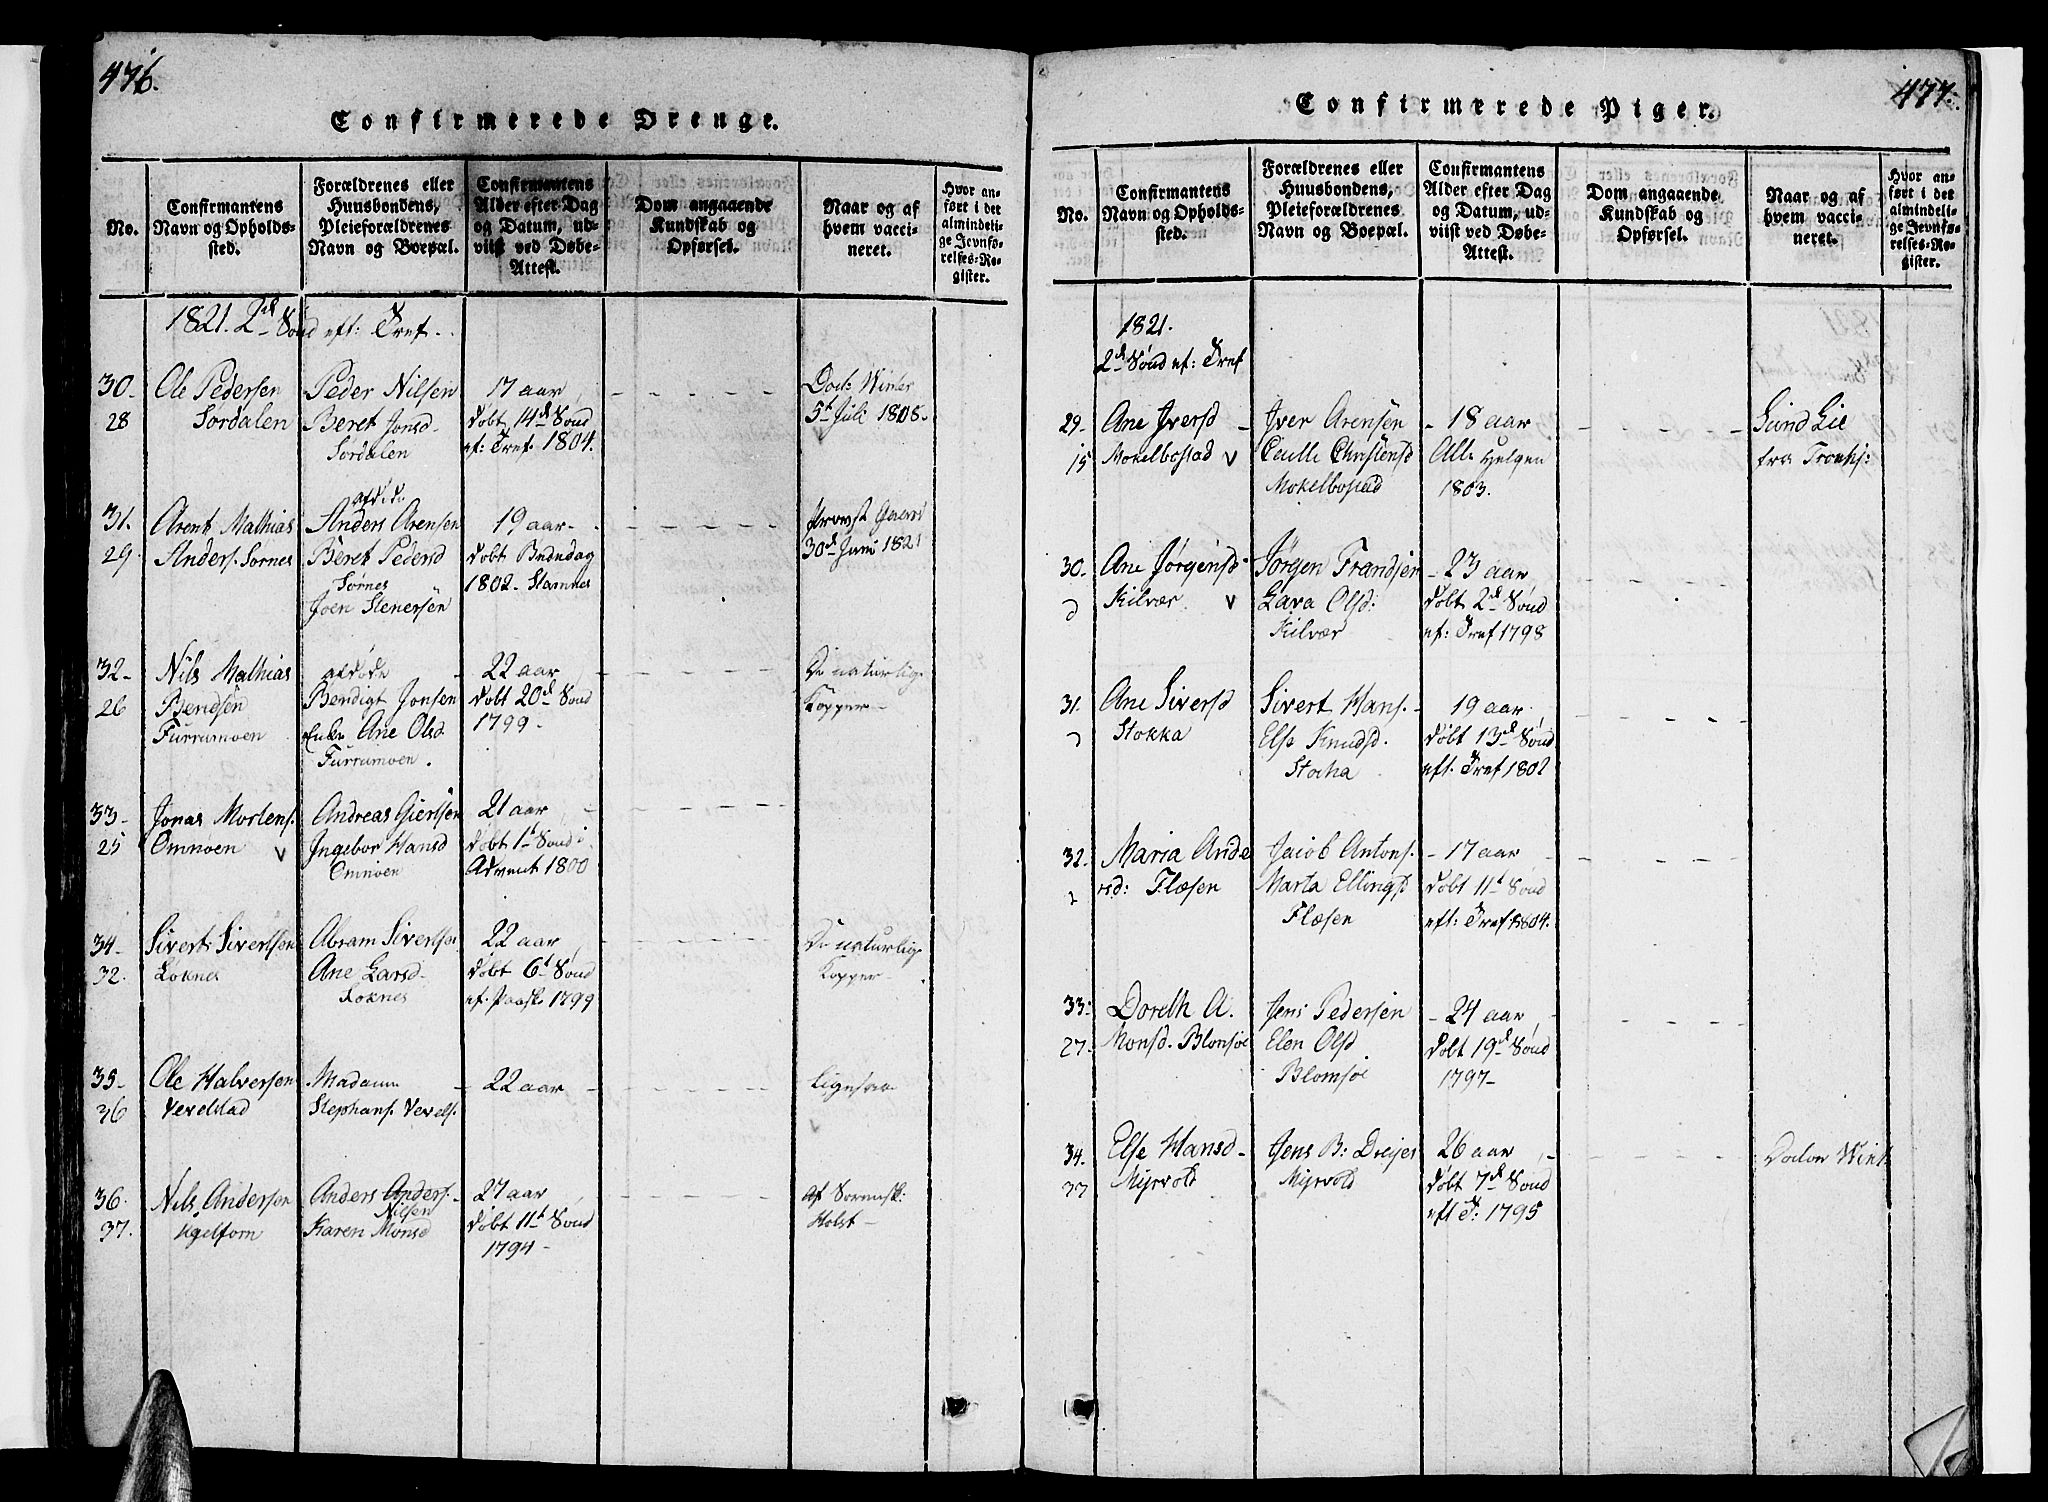 476.
Confirmerede Drenge.
No.
Confirmantens Navn og Opholdssted.
Forældrenes eller Huusbondens, Pleieforældrenes Navn og Boepæl.
Confirmantens Alder efter Dag og Datum, udviist ved Døbe-Attest.
Dom angaaende Kundskab og Opførsel.
Naar og af hvem vaccineret.
Hvor anført i det almindelige Jevnførelses-Register.
1821. 2d Sønd eft: Tref.
30. Ole Pedersen Peder Nilsen 17 aar Doct: Winter
28 Sørdalen Beret Jonsd døbt 14d Sønd 5t Juli 1808.
Sørdalen ef: Tref. 1804.
afdøde
31. Arent Mathias Anders Arensen 19 aar Provst
29 Anders. Sørnes Beret Pedersd døbt Bededag 30d Juni 1821
Sørnes 1802. Stamnes
Joen Stenersen
32 Nils Mathias afdøde 22 aar De naturlige
26 Bendsen Bendigt Jonsen døbt 20d Sønd Kopper
Furrumoen Enke Ane Olsd 1799
Furrumoen.
33 Jonas Mortens. Andreas Giertsen 21 aar
25 Omnøen v Ingebor Hansd døbt 1t Sønd i
Omnøen Advent 1800
34. Sivert Sivertsen Abram Sivertsen 22 aar De naturlige
32. Løknes Ane Larsd døbt 6t Sønd Kopper
Løknes ef. Paask. 1799
35 Ole Halversen Madam 22 aar Ligesaa
36 Verelstad Stephans. Verels.
36. Nils Andersen Anders Anders. 27 aar Af Sorensk:
Nilsen
37. Igelforn Karen Monsd døbt 11t Sønd Holst
1794
477.
Confirmerede Piger.
No.
Confirmantens Navn og Opholdssted.
Forældrenes eller Huusbondens, Pleieforældrenes Navn og Boepæl.
Confirmantens Alder efter Dag og Datum, udviist ved Døbe-Attest.
Dom angaaende Kundskab og Opførsel.
Naar og af hvem vaccineret.
Hvor anført i det almindelige Jevnførelses-Register.
1821.
2d Sønd ef: Tref
29. Ane Iversd Iver Arensen 18 aar Lund Lie
15 Mokelbostad v Christensd Alle Helgen fra Tronhj:
Mokelbostad 1803.
30. Ane Jørgensd Jørgen Frandsen 23 aar
Kilvær v Lava Olsd: døbt 2d Sønd
Kilvær ef: Tref 1798
31. Ane Siversd Sivert Hans. 19 aar
Stokka Else Knudsd. døbt 13d Sønd
Stocka eft. Tref 1802
32. Maria Ande Jacob Antons. 17 aar
rsd: Flæsen Marta Ellingsd døbt 11t Sønd
Flæsen eft: Tref: 1804.
33. Dorelh A. Jens Pedersen 24 aar
27. Monsd. Blomsøe Elen Olsd døbt 19d Sønd
Blomsøe 1797
34. Else Hansd Jens B: Dreyer 26 aar Wint
33 Myrvold Myrvold døbt 7d Sønd
eft T: 1795